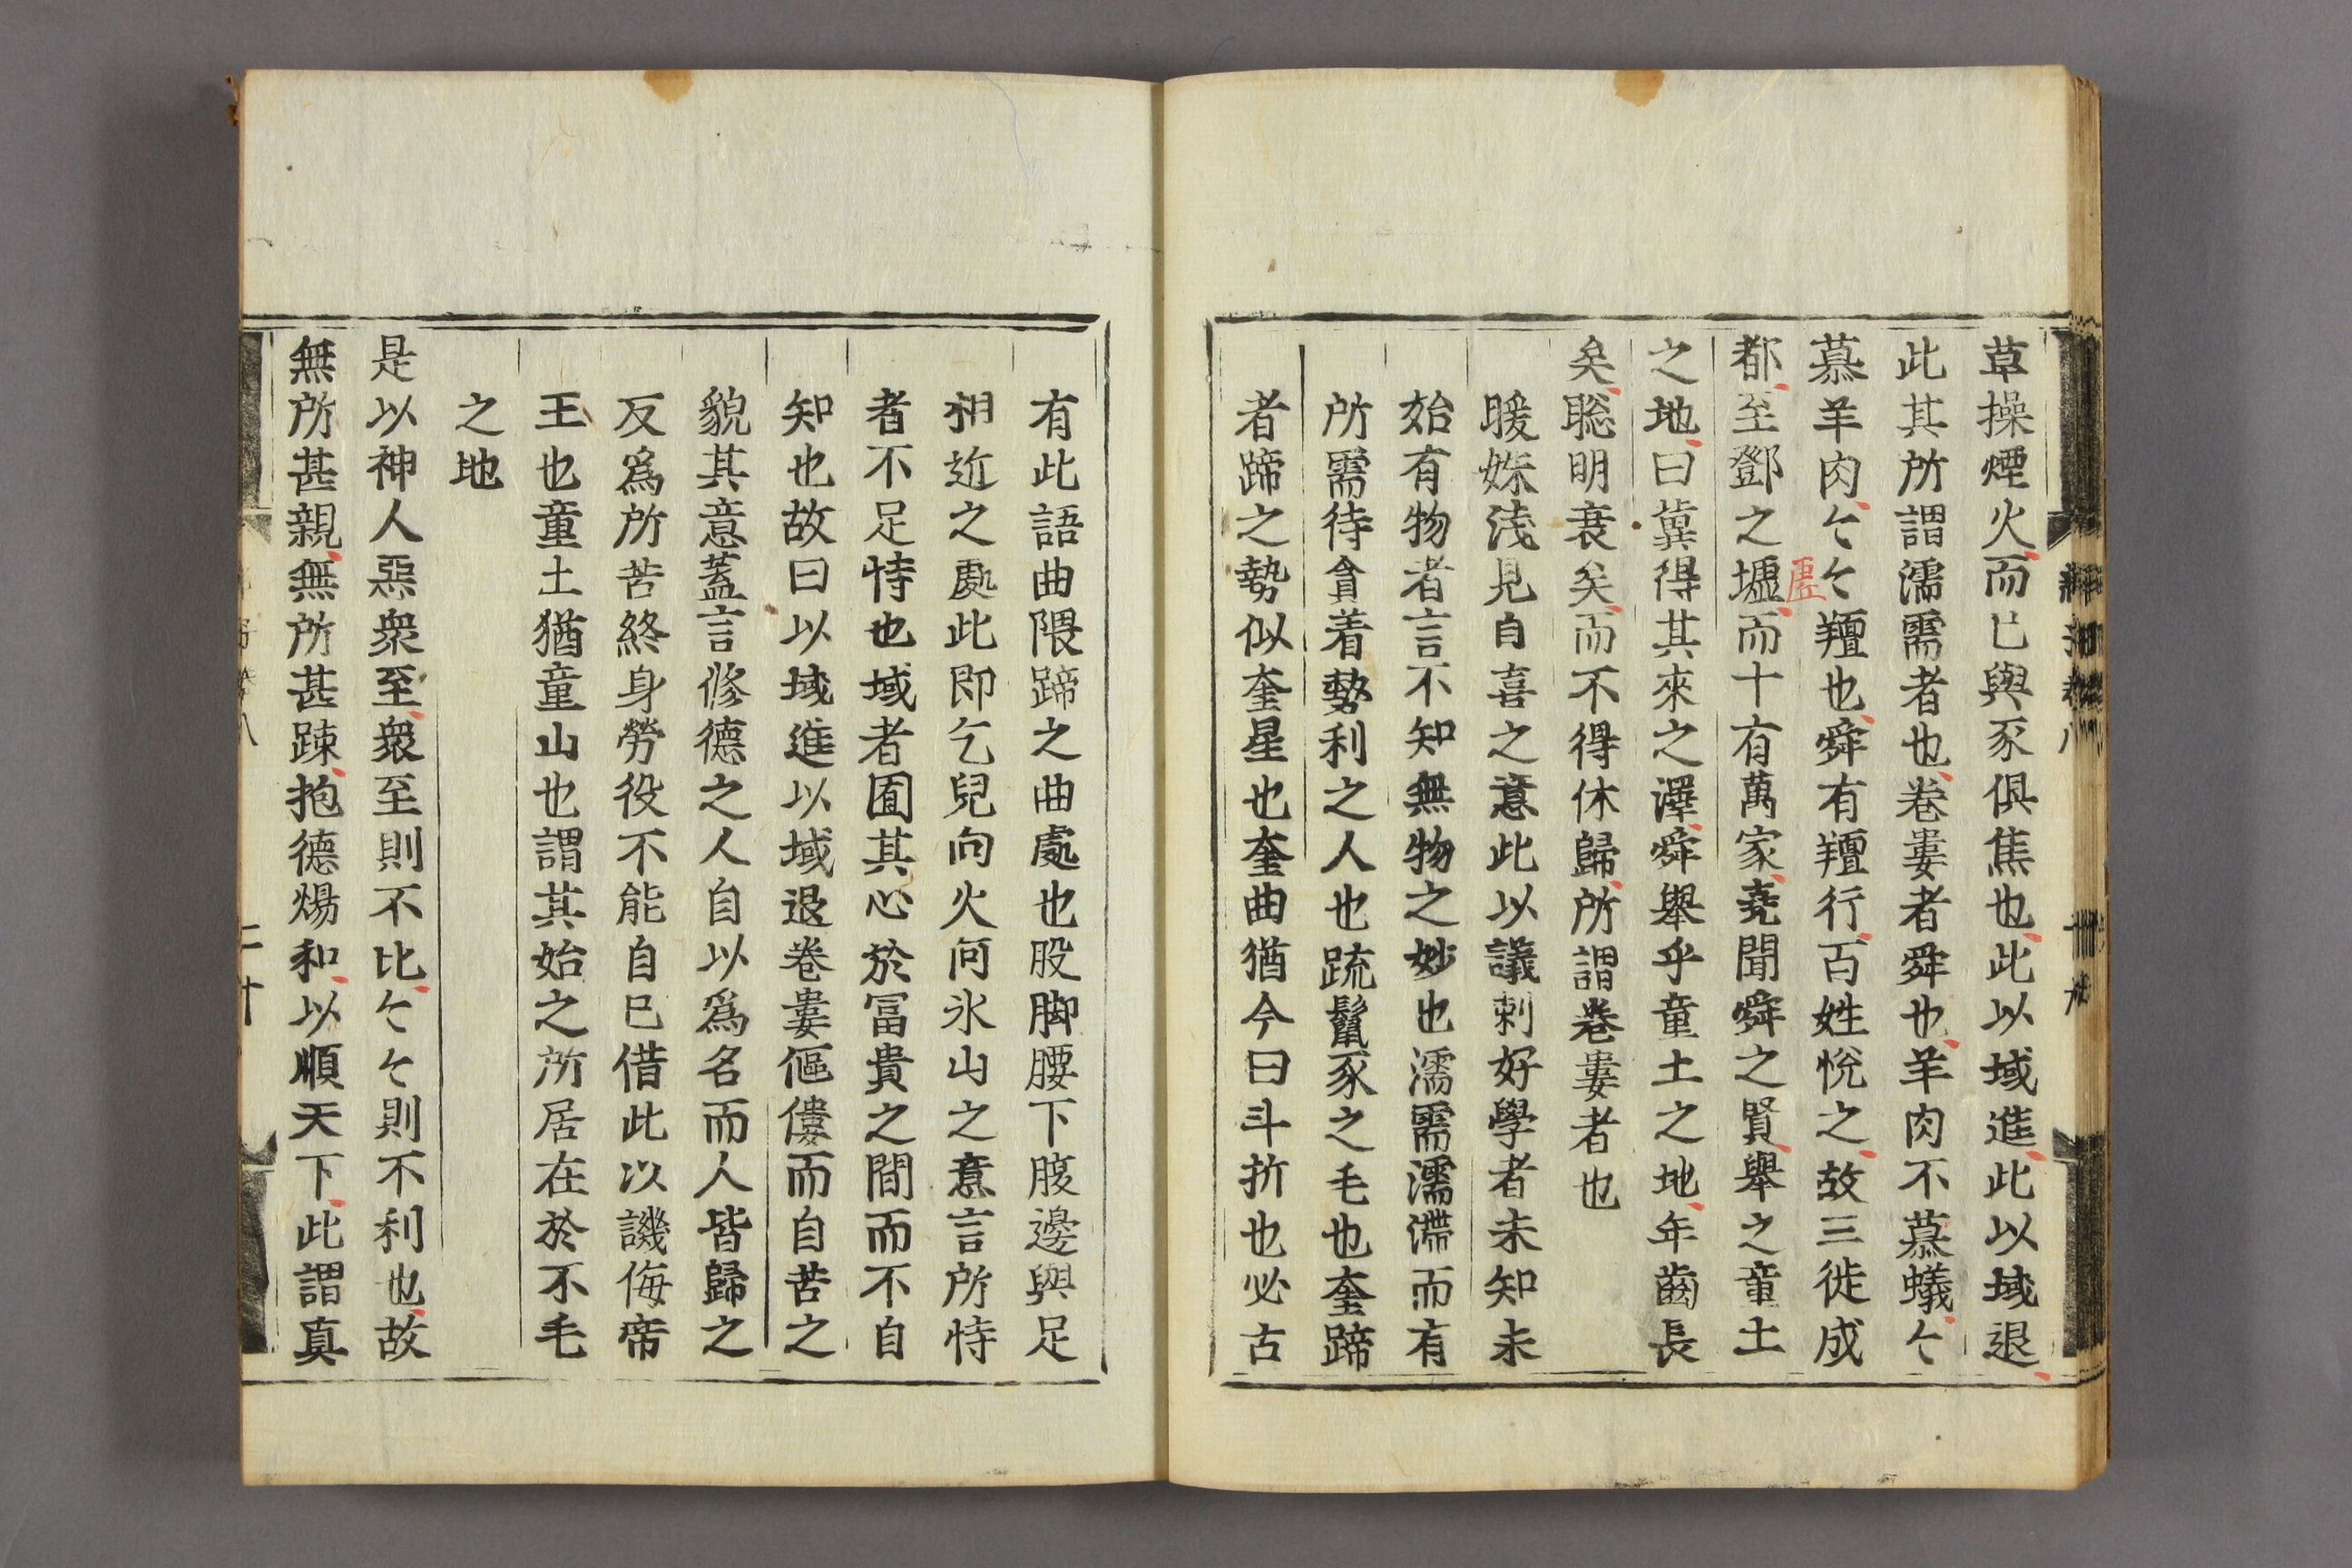 草操煙火而已與豕俱焦也此以域進此以域退
此其所謂濡需者也卷婁者舜也羊肉不慕蟻々
慕羊肉々々羶也舜有羶行百姓悅之故三徙成
都至鄧之墟而十有萬家堯聞舜之賢舉之童土
之地曰冀得其來之澤舜舉乎童土之地年齒長
矣聡明衰矣而不得休歸所謂卷婁者也
暖姝淺見自喜之意此以議刺好學者未知未
始有物者言不知無物之妙也濡需濡滯而有
所需待貪着勢利之人也䟽鬣豕之毛也奎蹄
者蹄之勢似奎星也奎曲猶今曰斗折也必古
有此語曲隈蹄之曲處也股脚腰下腹邊與足
相近之處此即乞兒向火何氷山之意言所恃
者不足恃也域者囿其心於冨貴之間而不自
知也故曰以域進以域退卷婁傴僂而自苦之
貌其意蓋言修德之人自以爲名而人皆歸之
反爲所苦終身勞役不能自已借此以譏侮帝
王也童土猶童山也謂其始之所居在於不毛
之地
是以神人惡衆至衆至則不比々々則不利也故
無所甚親無所甚踈抱德煬和以順天下此謂真
二十